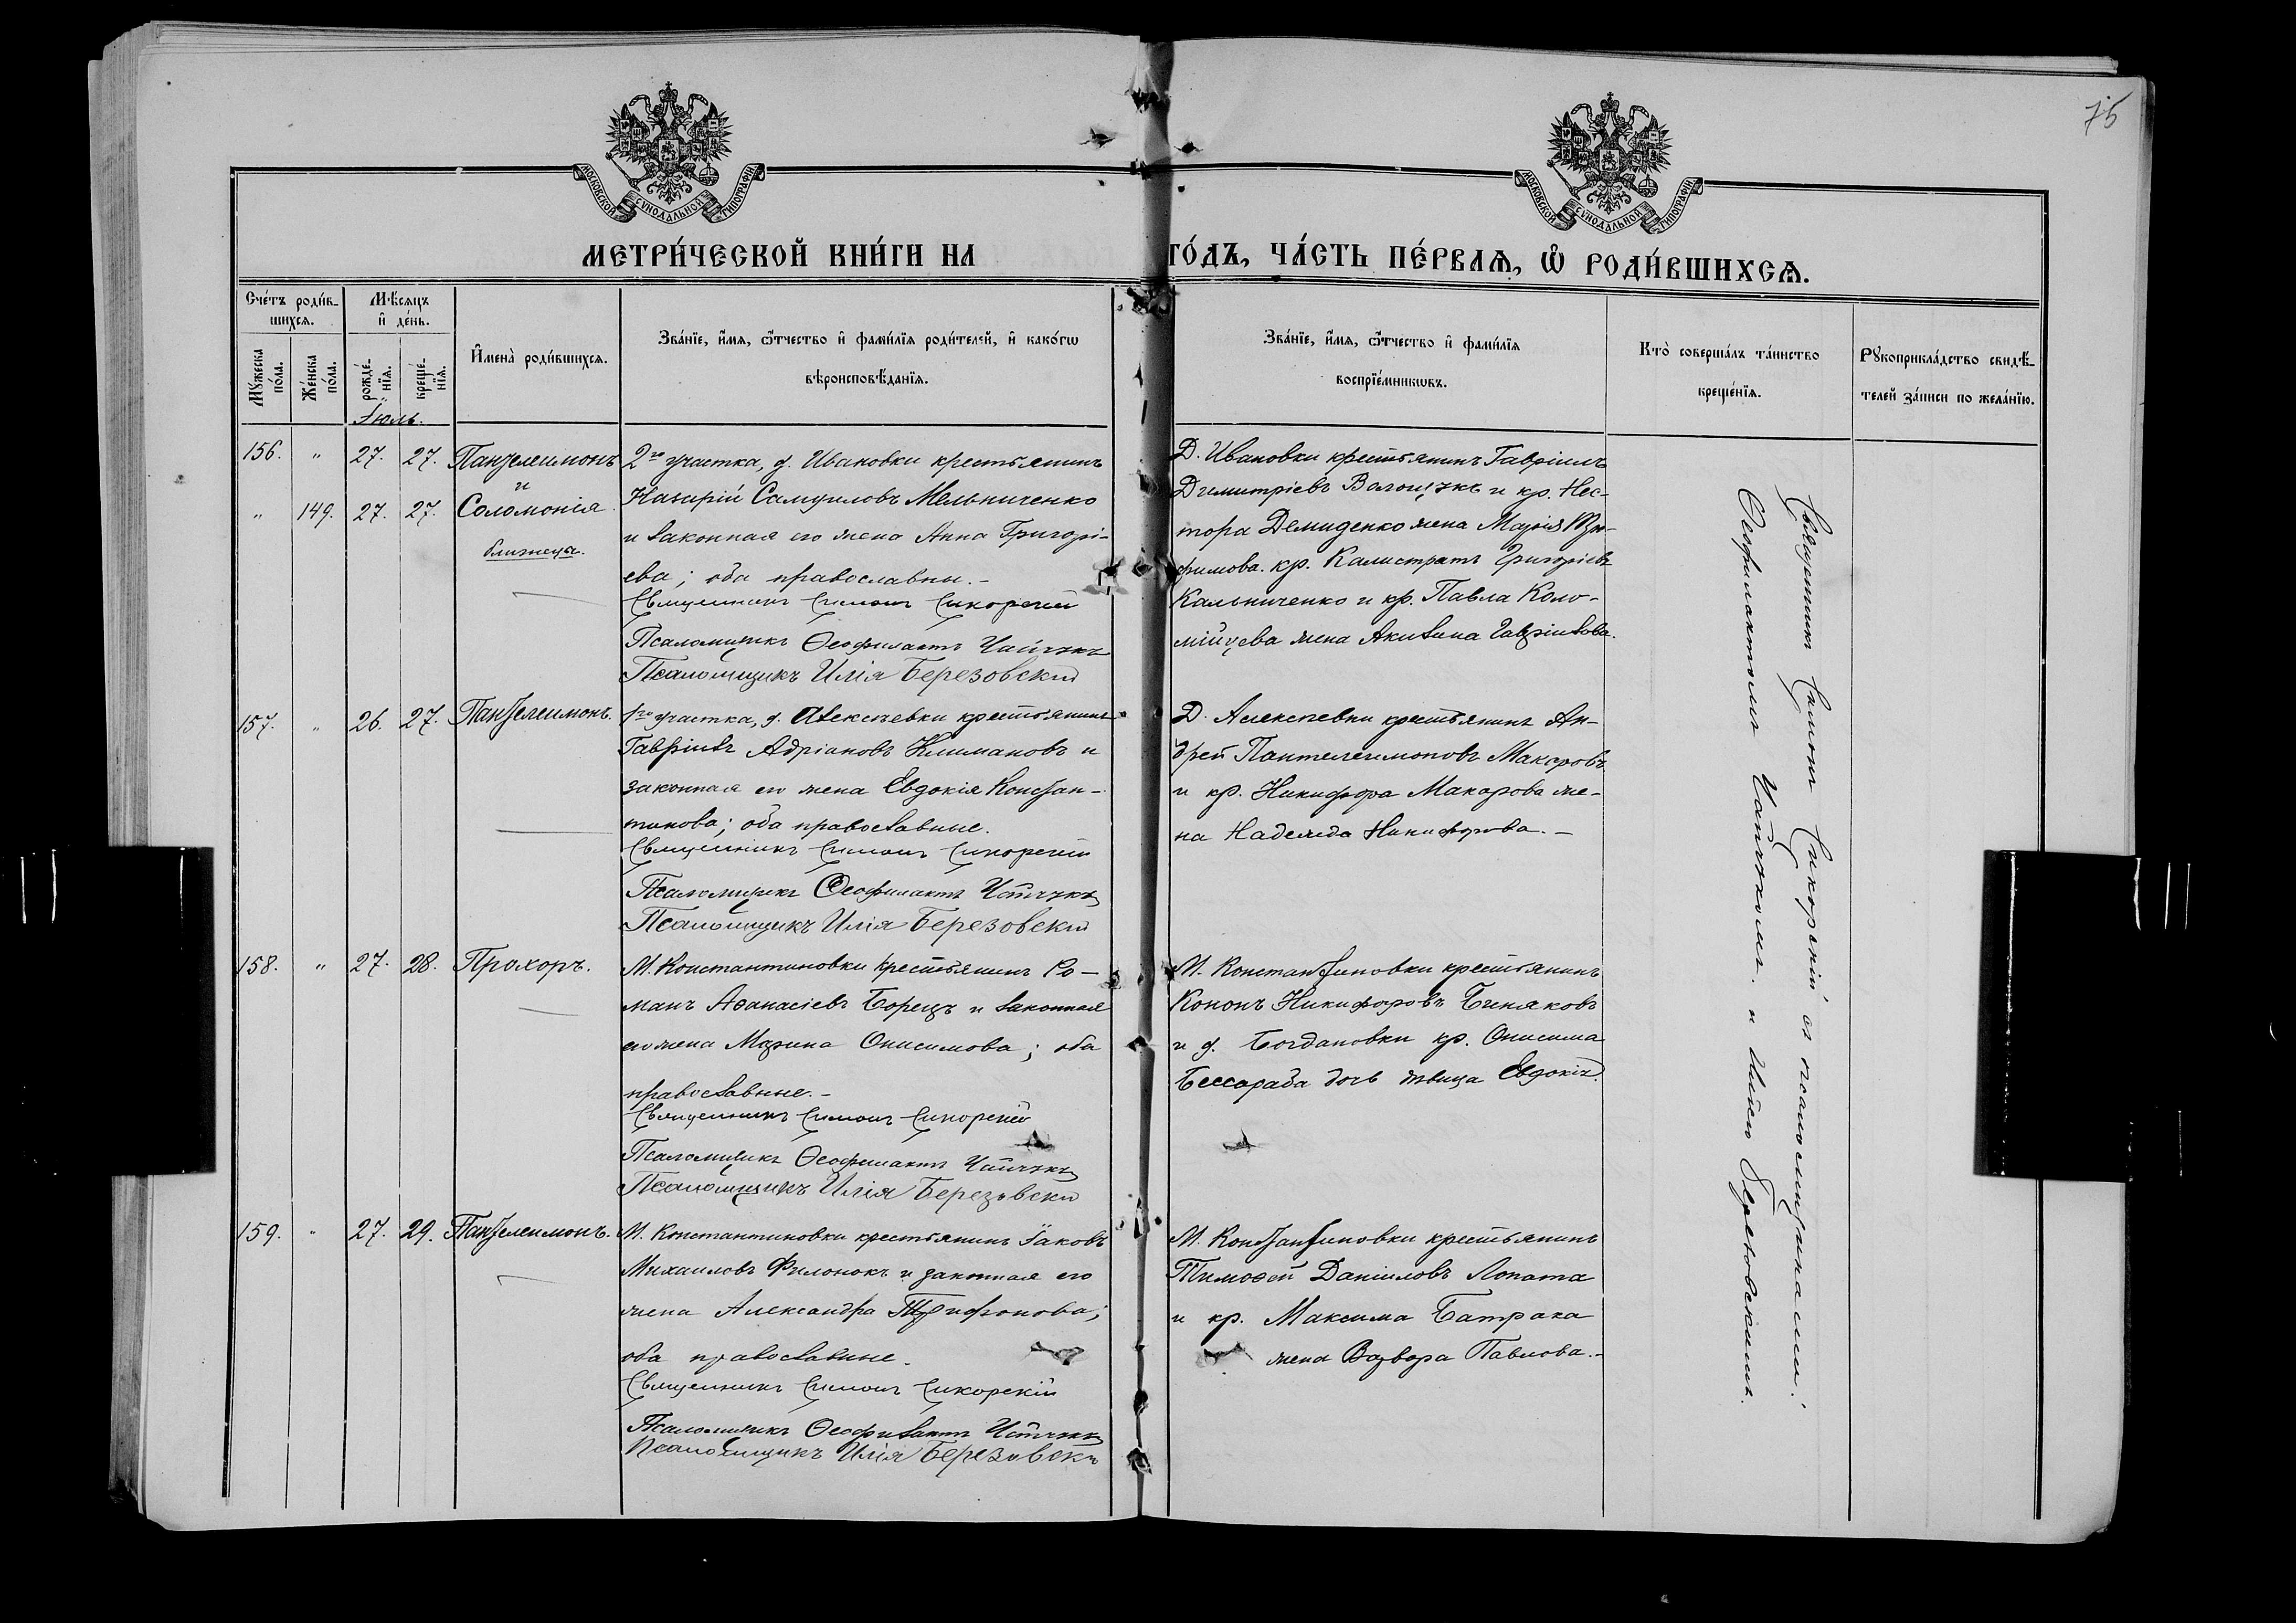 75
МОСКОВСКОЙ СУНОДАЛЬНОЙ ТИПОГРАФІИ
МОСКОВСКОЙ СУНОДАЛЬНОЙ ТИПОГРАФІИ
МЕТРИ́ЧЕСКОЙ КНИ́ГИ НА
ГО́ДЪ, ЧА́СТЬ ПЕ́РВАѦ, Ѡ҆ РОДИ́ВШИХСѦ.
Сче́тъ роди́в-
шихсѧ.
Мѣ́сѧцъ
и҆ де́нь.
Мꙋ́жеска
по́ла.
Же́нска
по́ла.
рожде́-
нїѧ.
креще́-
нїѧ.
И҆мена̀ роди́вшихсѧ.
Зва́нїе, и҆́мѧ, ѻ҆́тчество и҆ фами́лїѧ роди́телей, и҆ како́гѡ
вѣроисповѣ́данїѧ.
Зва́нїе, и҆́мѧ, ѻ҆́тчество и҆ фами́лїѧ
воспрїе́мникѡвъ.
Кто̀ соверша́лъ та́инство
креще́нїѧ.
Рꙋкоприкла́дство свидѣ́-
телей за́писи по жела́нїю.
Іюль.
156. " 27. 27. Пантелеимонъ
и
" 149. 27. 27. Соломонія.
близнецы.
2го участка, д. Ивановки крестьянинъ
Назарій Самуиловъ Мельниченко
и законная его жена Анна Григорі-
ева; оба православны.-
Священникъ Симонъ Сикорскій
Псаломщикъ Ѳеофилактъ Чайчукъ
Псаломщикъ Илія Березовскій
Д. Ивановки крестьянинъ Гавріилъ
Димитріевъ Волощукъ и кр. Нес-
тора Демиденко жена Марія Тро-
фимова. кр. Калистратъ Григоріевъ
Кальниченко и кр. Павла Коло-
мійцева жена Акилина Гавріилова.
157. " 26. 27. Пантелеимонъ.
1го участка, д. Алексѣевки крестьянинъ
Гавріилъ Адріановъ Климановъ и
законная его жена Евдокія Констан-
тинова; оба православные.
Священникъ Симонъ Сикорскій
Псаломщикъ Ѳеофилактъ Чайчукъ
Псаломщикъ Илія Березовскій
Д. Алексѣевки крестьянинъ Ан-
дрей Пантелеимоновъ Макаровъ
и кр. Никифора Макарова же-
на Надежда Никифорова. -
158. " 27. 28. Прохоръ.
М. Константиновки крестьянинъ Ро-
манъ Аѳанасіевъ Борецъ и законная
его жена Марина Онисимова; оба
православные.-
Священникъ Симонъ Сикорскій
Псаломщикъ Ѳеофилактъ Чайчукъ
Псаломщикъ Илія Березовскій
М. Константиновки крестьянинъ
Кононъ Никифоровъ Биняковъ
и д. Богдановки кр. Онисима
Бессараба дочь дѣвица Евдокія.
159. " 27. 29. Пантелеимонъ.
М. Константиновки крестьянинъ Іаковъ
Михаиловъ Филонокъ и законная его
жена Александра Трифонова;
оба православные.
Священникъ Симонъ Сикорскій
Псаломщикъ Ѳеофилактъ Чайчукъ
Псаломщикъ Илія Березовскій
М. Константиновки крестьянинъ
Тимоѳей Даніиловъ Лопата
и кр. Максима Батрака
жена Варвара Павлова.-
Священникъ Симонъ Сикорскій съ псаломщиками:
Ѳеофилактомъ Чайчукомъ и Иліею Березовскимъ.